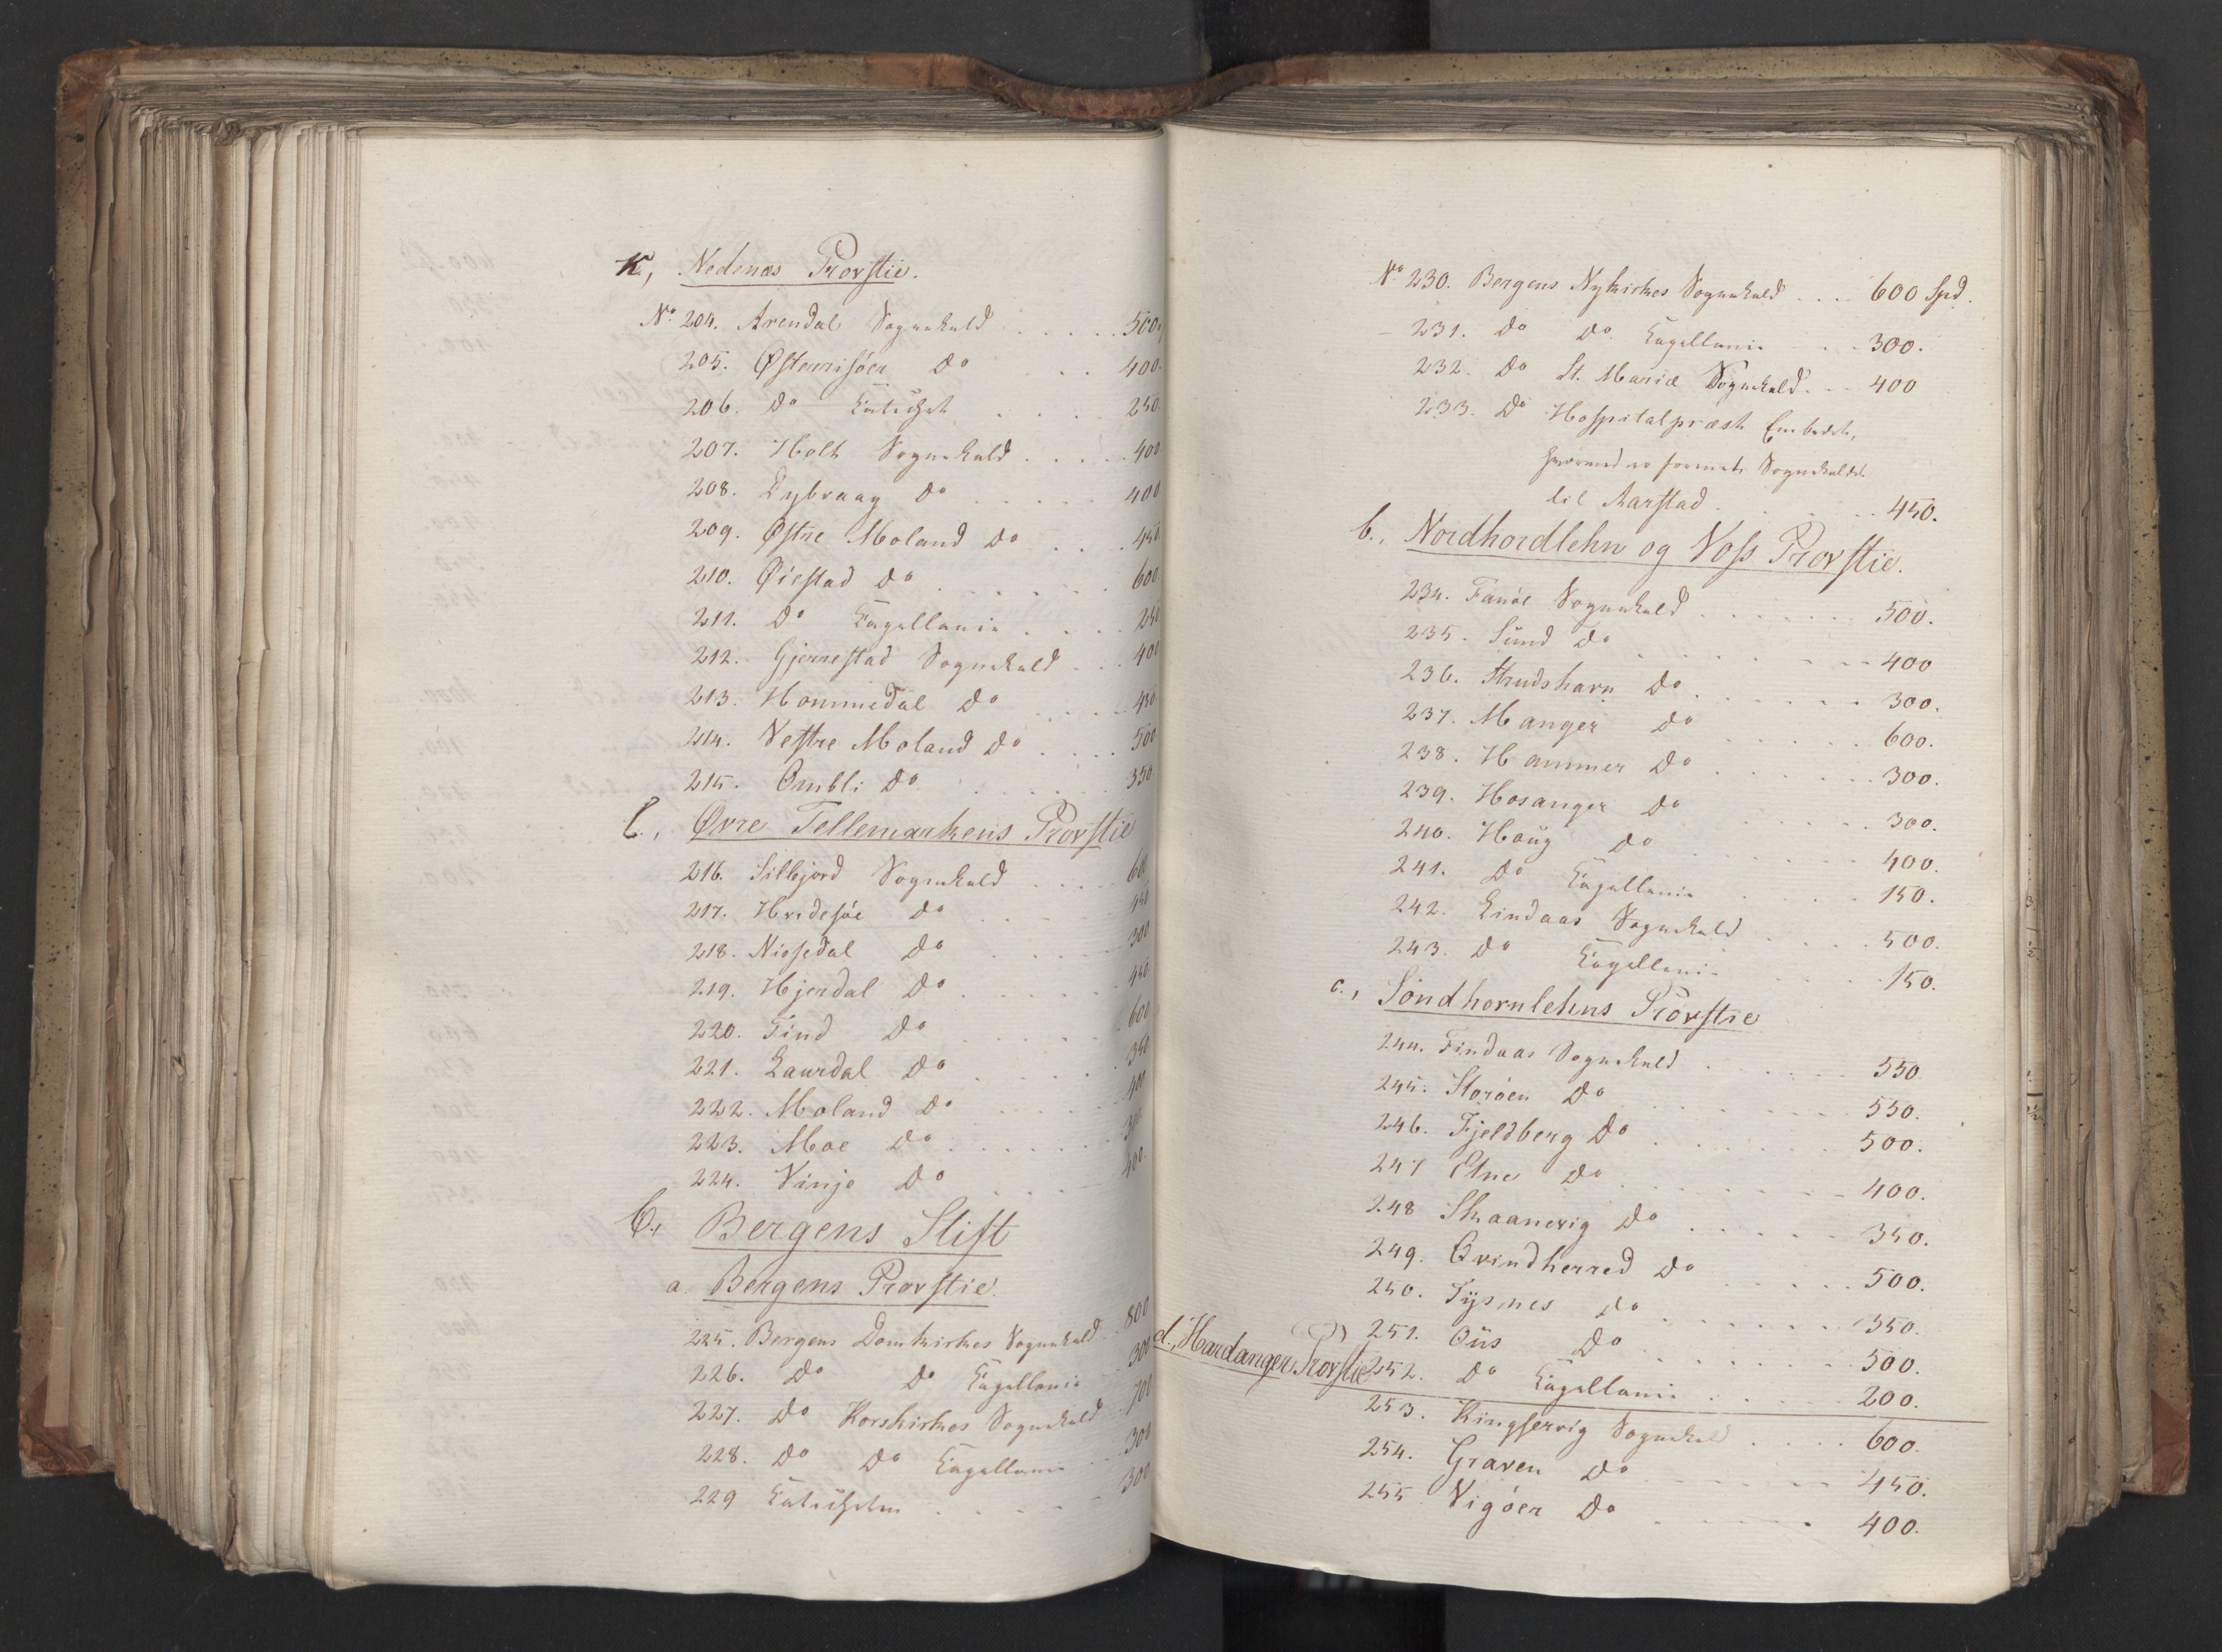 K, Nedenæs Provstie.
No 204. Arendal Sognekald . . . . 500
205. Østerrisöer do . . 400.
206. do Catechet . . . . 250.
207. Holt Sognekald . . . . 400
208. Dybvaag do . . . . . 400
209. Østre Moland do . . . 450
210. Øiestad do . . . . . . 600.
211. do Capellanie . . . . 250
212. Gjerrestad Sognekald . . . 400
213. Hommedal do . . . . 450
214. Vestre Moland do . . . . 500
215. Ombli do . . . . . . 350.
l., Øvre Tellemarkens Provstie
216. Sillejord Sognekald . . . . 600
217. Hvidesöe do . . . 450
218. Nissedal do . . . . 300
219. Hjerdal do . . . . . 450.
220. Tind do . . . . . 600
221. Laurdal do . . . . . 350
222. Moland do . . . . . 400
223. Moe do . . . . . . 300
224. Vinje do . . . 400.
C., Bergens Stift
a. Bergens Provstie.
225. Bergens Domkirkes Sognekald . 800
226. do do Capellanie 300
227. do Korskirkes Sognekald 700
228. do do Capellanie . . 300
229 Catecheten . . . . . 300
No 230. Bergens Nykirkes Sognekald . . . . 600 Spd.
231. do do. Capellanie . . . 300.
232. do St. Mariæ Sognekald . . . 400
233. do Hospitalpræst Embedet,
hvormed er forenet Sognekaldet
til Aarstad . . . . 450.
b., Nordhordlehn og Voss Provstie.
234. Fanöe Sognekald . . . . . . 500.
235. Sund do . . . . . . . 400
236. Strudshavn do . . . . . . 300.
237. Manger do . . . . . 600.
238. Hammer do . . . . . . 300.
239. Hosanger do . . . . . . 300.
240. Houg do . . . . . . 400.
241. do Capellanie . . . . . 150.
242. Lindaas Sognekald . . . . 500.
243. do Capellanie . . . . 150.
c., Söndhornlehns Provstie
244. Findaas Sognekald . . . . . 550
245. Storöen do . . . . . . . 550.
246. Fjeldberg do . . . . . . 500.
247 Etne do . . . . . . . 400.
248 Skaanevig do . . . . . . 350.
249. Qvindherred do . . . . . 500.
250. Tysnes do . . . . . . . 350.
251. Ous do . . . . . . . 500.
252. do Capellanie . . . . . 200.
d., Hardanger Provstie
253. Kingservig Sognekald . . . . 600.
254. Graven do . . . . . . 450.
255 Vigöer do . . . . . 400.